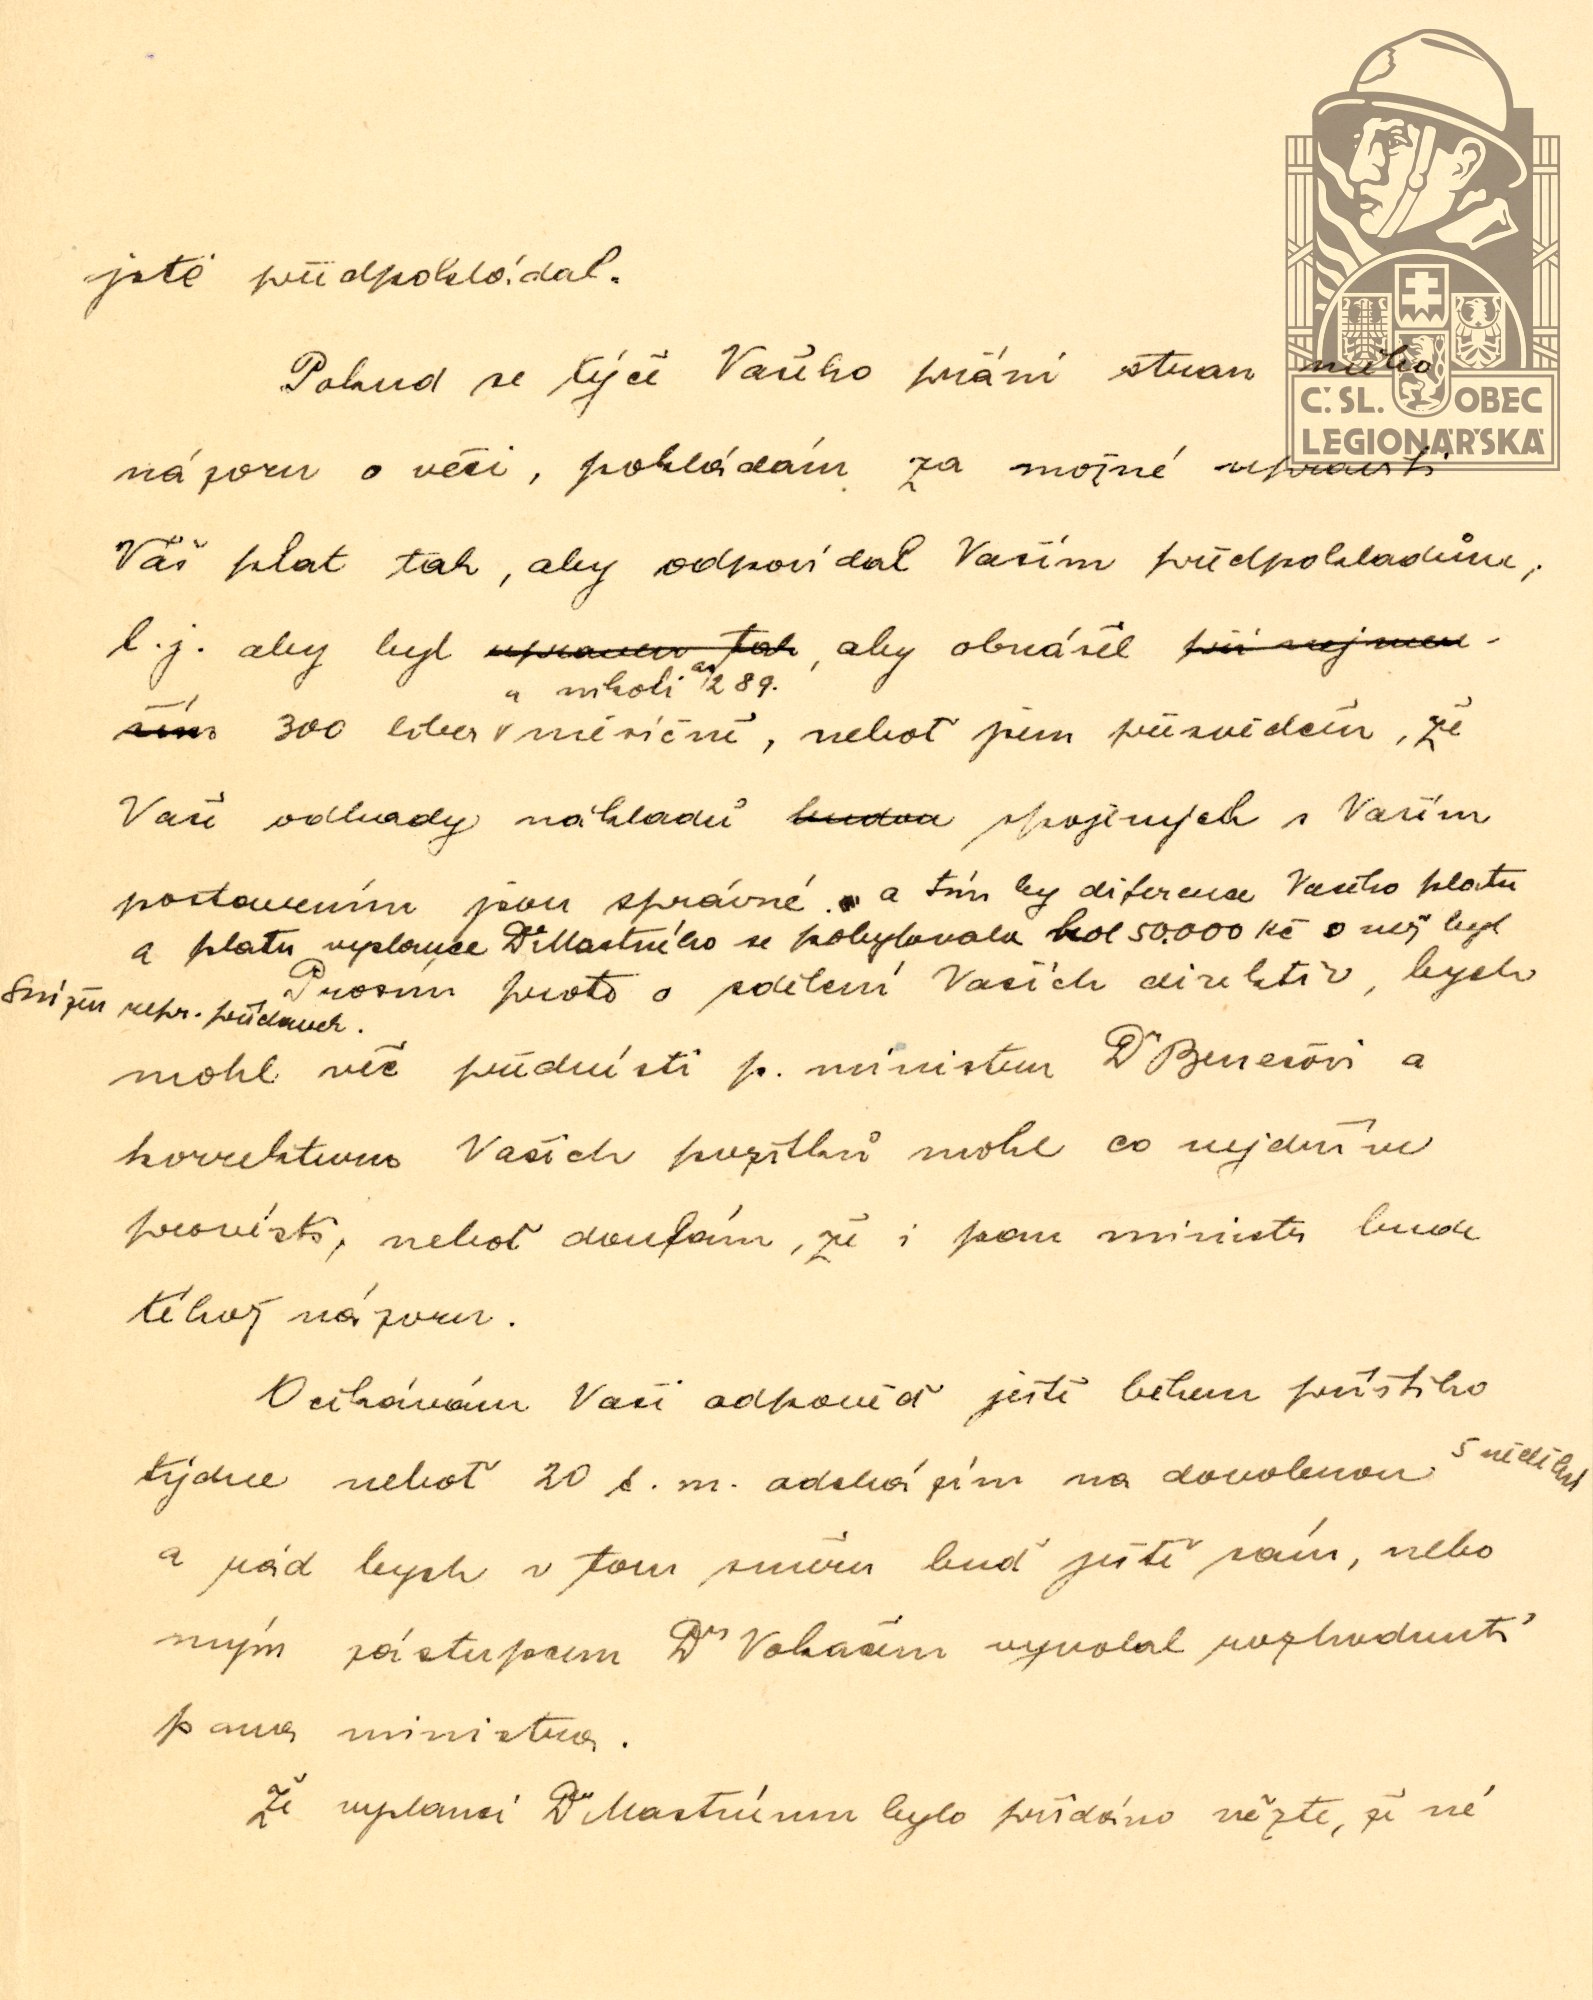 jstě předpokládal.
Pokud se týče Vašeho přání stran mého
názoru o věci, pokládám za možné upraviti
Váš plat tak, aby odpovídal Vašim předpokladům,
t.j. aby byl upraven tak, aby obnášel při nejmen-
a nikoli as 289.
ším 300 liber měsíčně, neboť jsem přesvědčen, že
Vaše odhady nákladů budou spojených s Vaším
postavením jsou správné. a tím by diference Vašeho platu
a platu vyslance Dr Mastného se pohybovala kol 50.000 Kč o něž byl
snížen repr. přídavek.
Prosím proto o sdělení Vašich direktiv, bych
mohl věc přednésti p. ministru Dr Benešovi a
korrekturu Vašich požitků mohl co nejdříve
provésti, neboť doufám, že i pan ministr bude
téhož názoru.
Očekávám Vaši odpověď ještě během příštího
týdne neboť 20 t.m. odcházím na dovolenou 5 nedělní
a rád bych v tom směru buď ještě sám, nebo
mým zástupcem Drs Vokáčem vyvolal rozhodnutí
pana ministra.
Že vyslanci Dr Mastnému bylo přidáno vězte, že ne
Č. SL. OBEC
LEGIONÁŘSKÁ